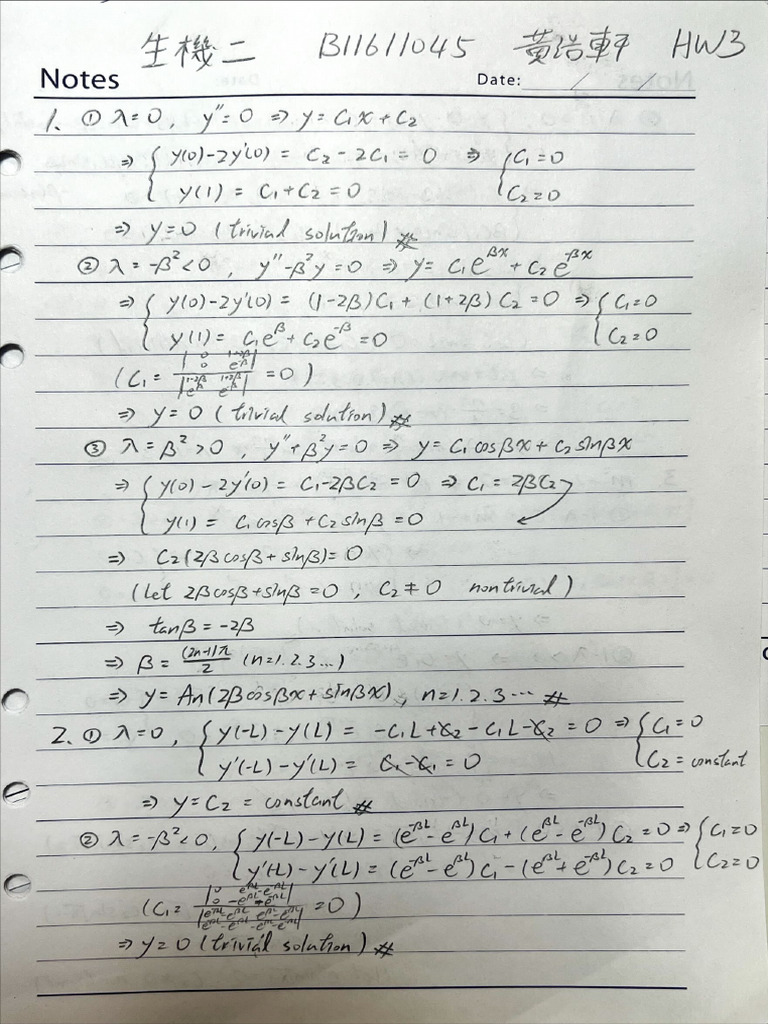 生機二 B11611045 黃浩軒 HW3
Notes Date: / /
1. ① λ=0, y''=0 ⇒ y=C₁x+C₂
⇒ { y(0)-2y'(0) = C₂-2C₁=0 ⇒ { C₁=0
y(1) = C₁+C₂=0 C₂=0
⇒ y=0 (trivial solution) #
② λ=-β²<0, y''-β²y=0 ⇒ y= C₁e^{βx}+C₂e^{-βx}
⇒ { y(0)-2y'(0) = (1-2β)C₁+(1+2β)C₂=0 ⇒ { C₁=0
y(1) = C₁e^{β}+C₂e^{-β}=0 C₂=0
(C₁= |0 1+2β; 0 e^{-β}| / |1-2β 1+2β; e^{β} e^{-β}| =0)
⇒ y=0 (trivial solution) #
③ λ=β²>0, y''+β²y=0 ⇒ y= C₁cosβx+C₂sinβx
⇒ { y(0)-2y'(0) = C₁-2βC₂=0 ⇒ C₁=2βC₂
y(1) = C₁cosβ+C₂sinβ=0
⇒ C₂(2βcosβ+sinβ)=0
(Let 2βcosβ+sinβ=0, C₂≠0 nontrivial)
⇒ tanβ=-2β
⇒ β= (2n-1)π/2 (n=1.2.3...)
⇒ y= An(2βcosβx+sinβx), n=1.2.3... #
2. ① λ=0, { y(-L)-y(L) = -C₁L+C₂-C₁L-C₂=0 ⇒ { C₁=0
y'(-L)-y'(L) = C₁-C₁=0 C₂=constant
⇒ y=C₂=constant #
② λ=-β²<0, { y(-L)-y(L) = (e^{-βL}-e^{βL})C₁+(e^{βL}-e^{-βL})C₂=0 ⇒ { C₁=0
y'(-L)-y'(L) = (e^{-βL}-e^{βL})C₁-(e^{βL}+e^{-βL})C₂=0 C₂=0
⇒ y=0 (trivial solution) #